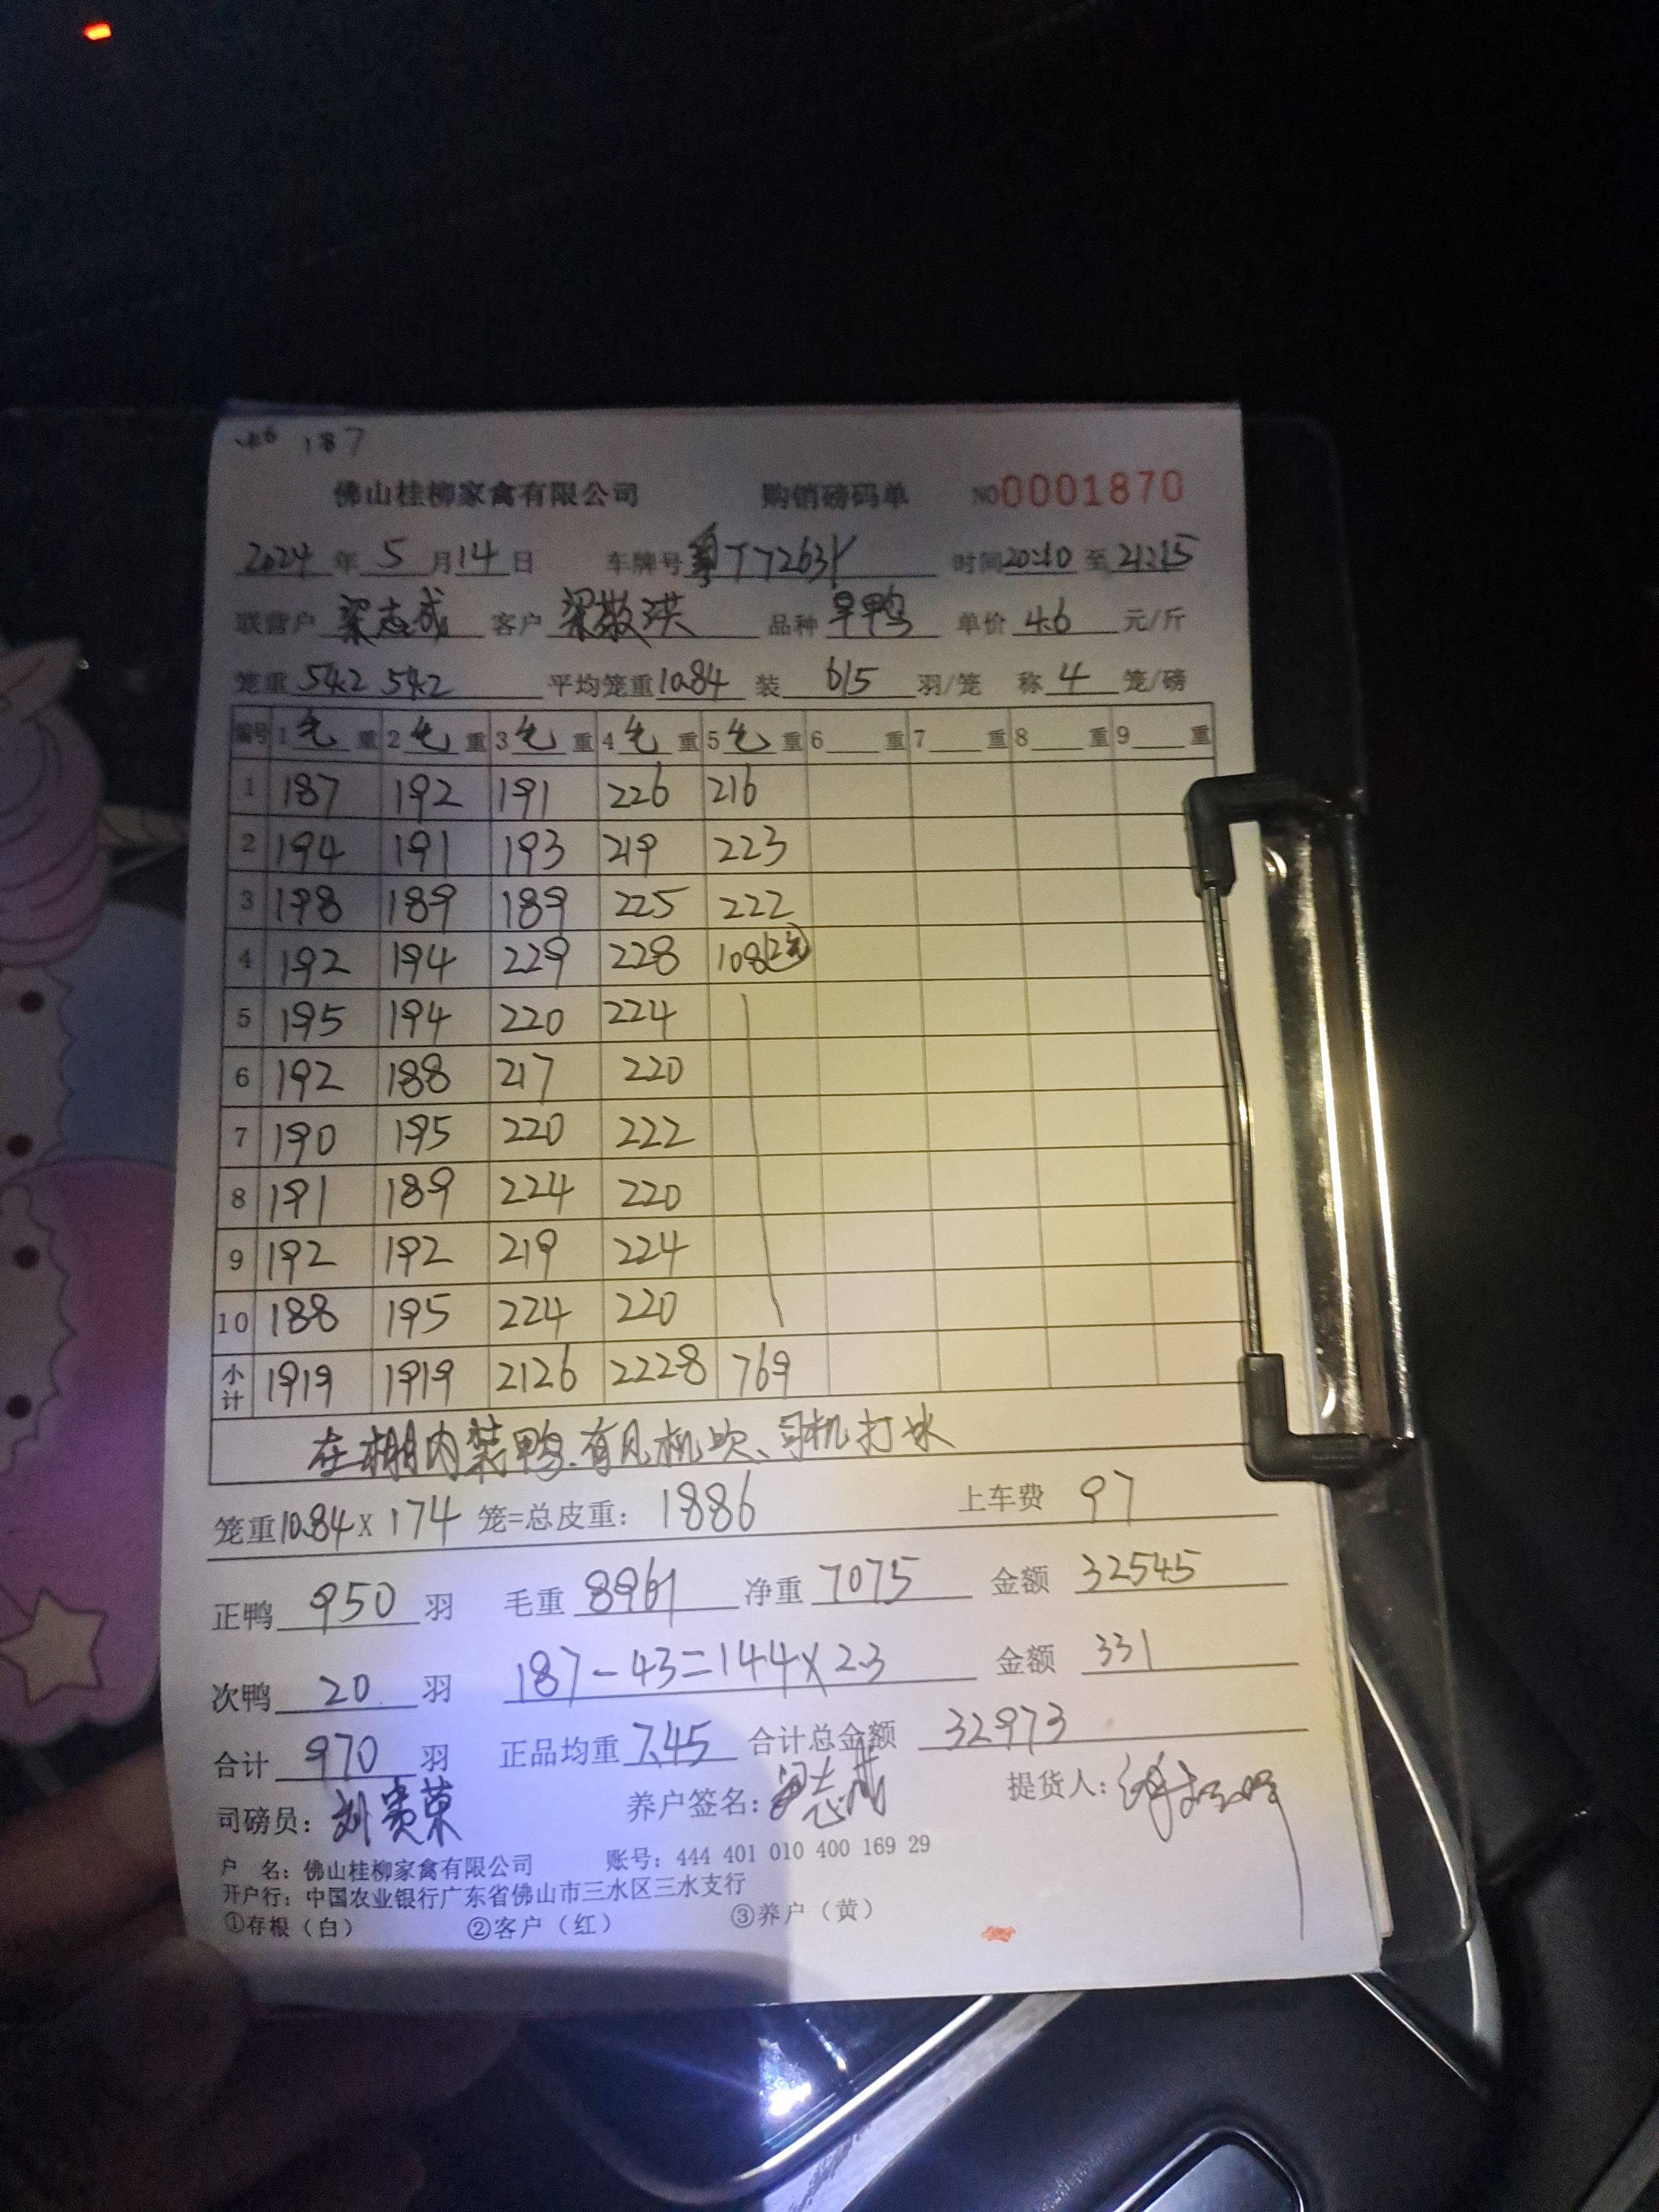 187
佛山桂柳家禽有限公司 购销磅码单 NO0001870
2024年5月14日 车牌号粤T7263Y 时间20:10至21:15
联营户 梁志成 客户 梁敬洪 品种 旱鸭 单价 4.6 元/斤
笼重 54.2 54.2 平均笼重10.84 装 6/5 羽/笼 称 4 笼/磅
编号 1毛重 2毛重 3毛重 4毛重 5毛重 6 重 7 重 8 重 9 重
1 187 192 191 226 216
2 194 191 193 219 223
3 198 189 189 225 222
4 192 194 229 228 108
5 195 194 220 224
6 192 188 217 220
7 190 195 220 222
8 191 189 224 220
9 192 192 219 224
10 188 195 224 220
小计 1919 1919 2126 2228 769
在棚内装鸭、有风机吹、司机打水
笼重10.84×174笼=总皮重:1886 上车费 97
正鸭 950 羽 毛重 8961 净重 7075 金额 32545
次鸭 20 羽 187-43=144×2.3 金额 331
合计 970 羽 正品均重7.45 合计总金额 32973
司磅员:刘贵荣 养户签名:梁志成 提货人:
户 名:佛山桂柳家禽有限公司 账号:444 401 010 400 169 29
开户行:中国农业银行广东省佛山市三水区三水支行
①存根(白) ②客户(红) ③养户(黄)